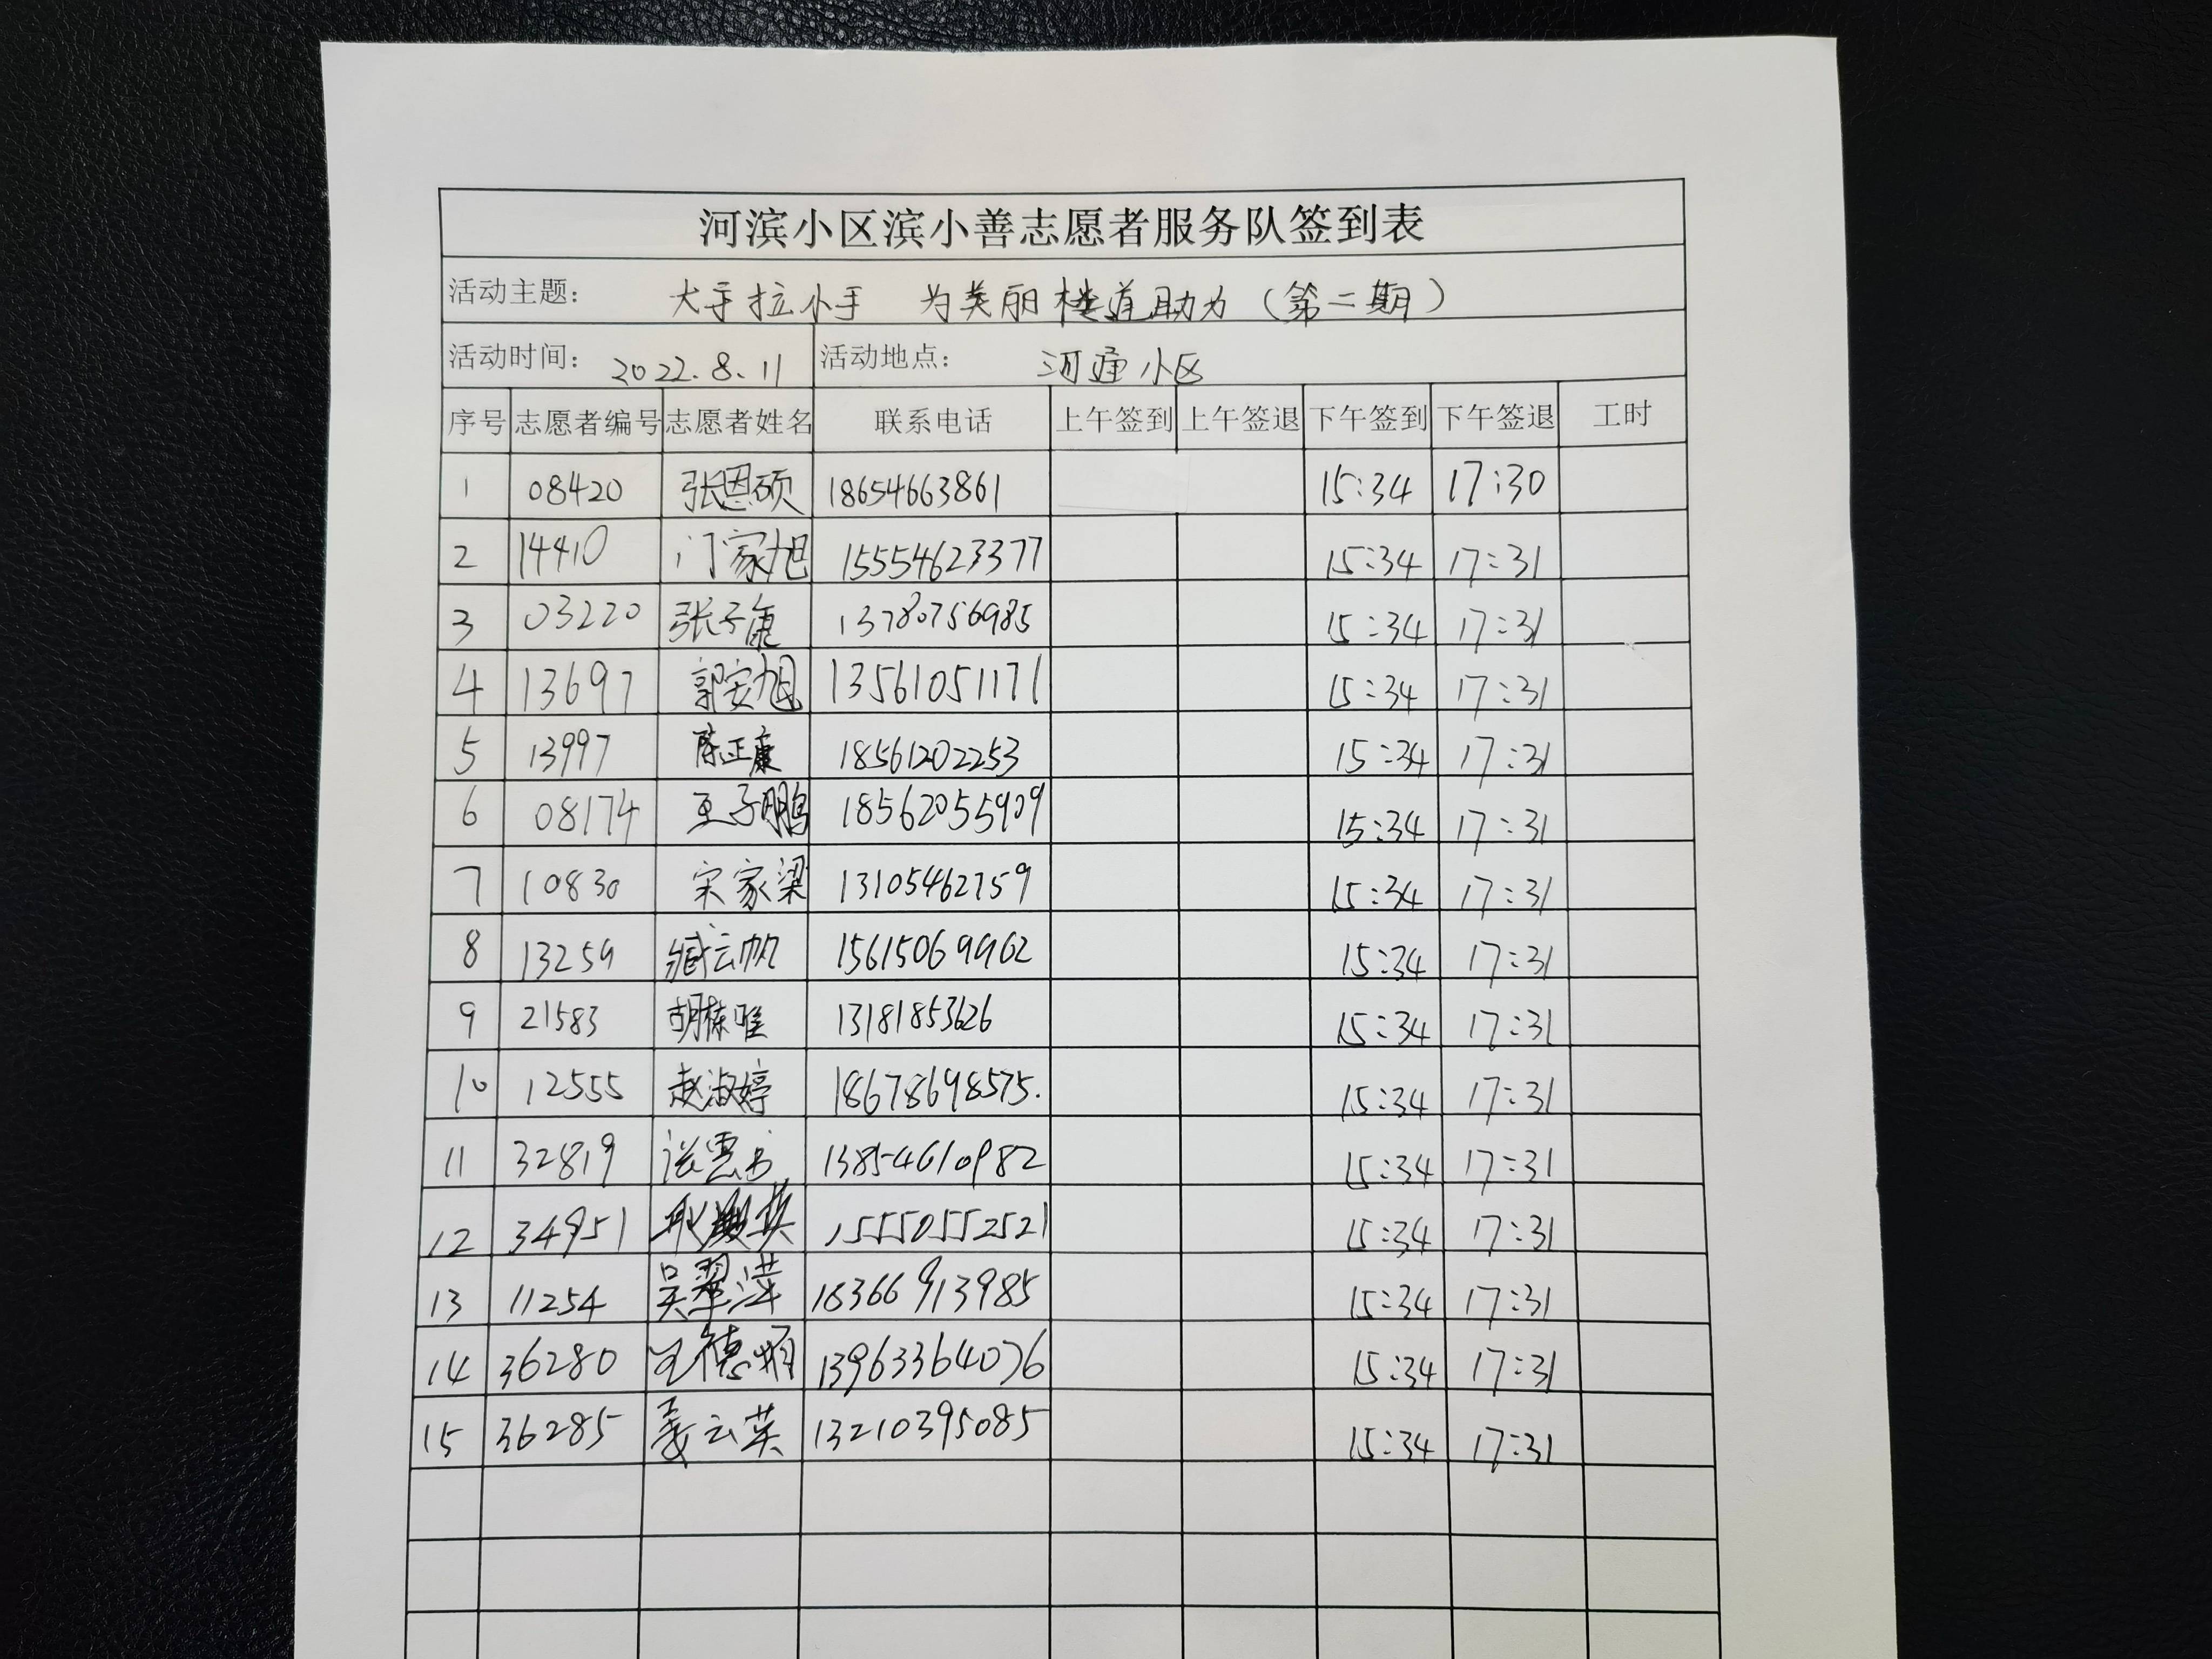 河滨小区滨小善志愿者服务队签到表
活动主题： 大手拉小手 为美丽楼道助力（第二期）
活动时间： 2022.8.11 活动地点： 河通小区
序号 志愿者编号 志愿者姓名 联系电话 上午签到 上午签退 下午签到 下午签退 工时
1 08420 张恩硕 18654663861 15:34 17:30
2 14410 门家旭 15554623377 15:34 17:31
3 03220 张子康 13780756985 15:34 17:31
4 13697 郭安旭 13561051171 15:34 17:31
5 13997 陈正康 18561202253 15:34 17:31
6 08174 王子鹏 18562055909 15:34 17:31
7 10830 宋家梁 13105462759 15:34 17:31
8 13259 臧云帆 15615069902 15:34 17:31
9 21583 胡栋唯 13181853626 15:34 17:31
10 12555 赵淑婷 18678698575. 15:34 17:31
11 32819 13854610982 15:34 17:31
12 34951 15550552521 15:34 17:31
13 11254 吴翠萍 18366913985 15:34 17:31
14 36280 王德顺 13963364076 15:34 17:31
15 36285 姜云英 13210395085 15:34 17:31